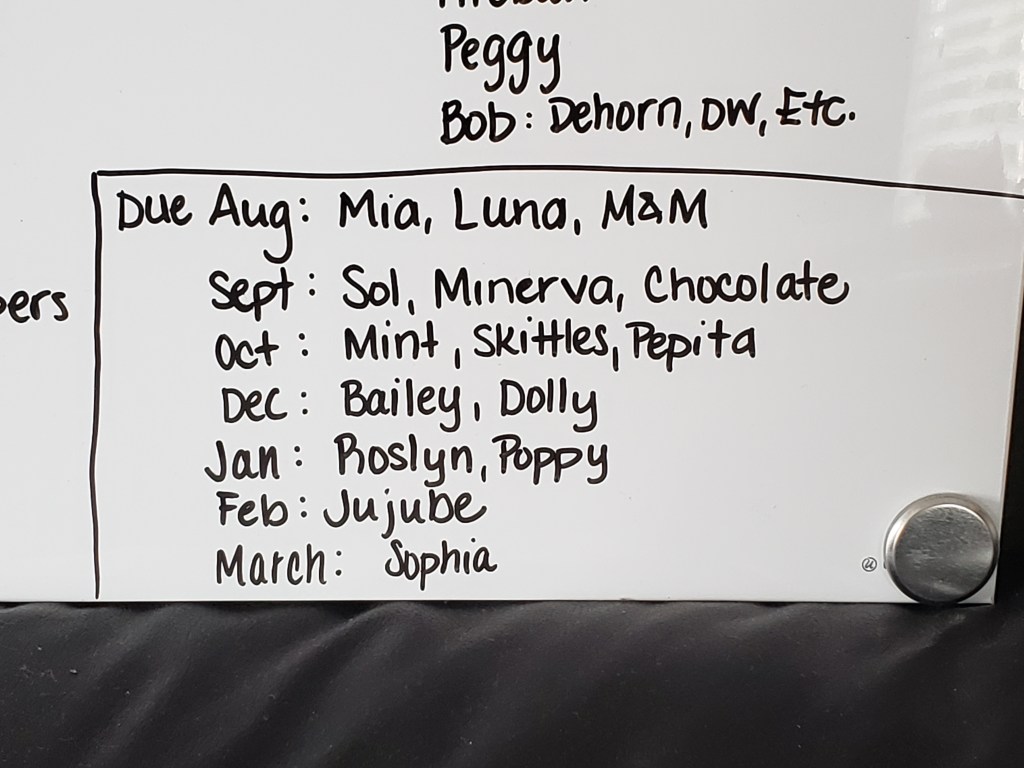 Peggy
Bob: Dehorn, DW, Etc.
Due Aug: Mia, Luna, M&M
Sept: Sol, Minerva, Chocolate
Oct: Mint, Skittles, Pepita
Dec: Bailey, Dolly
Jan: Roslyn, Poppy
Feb: Jujube
March: Sophia